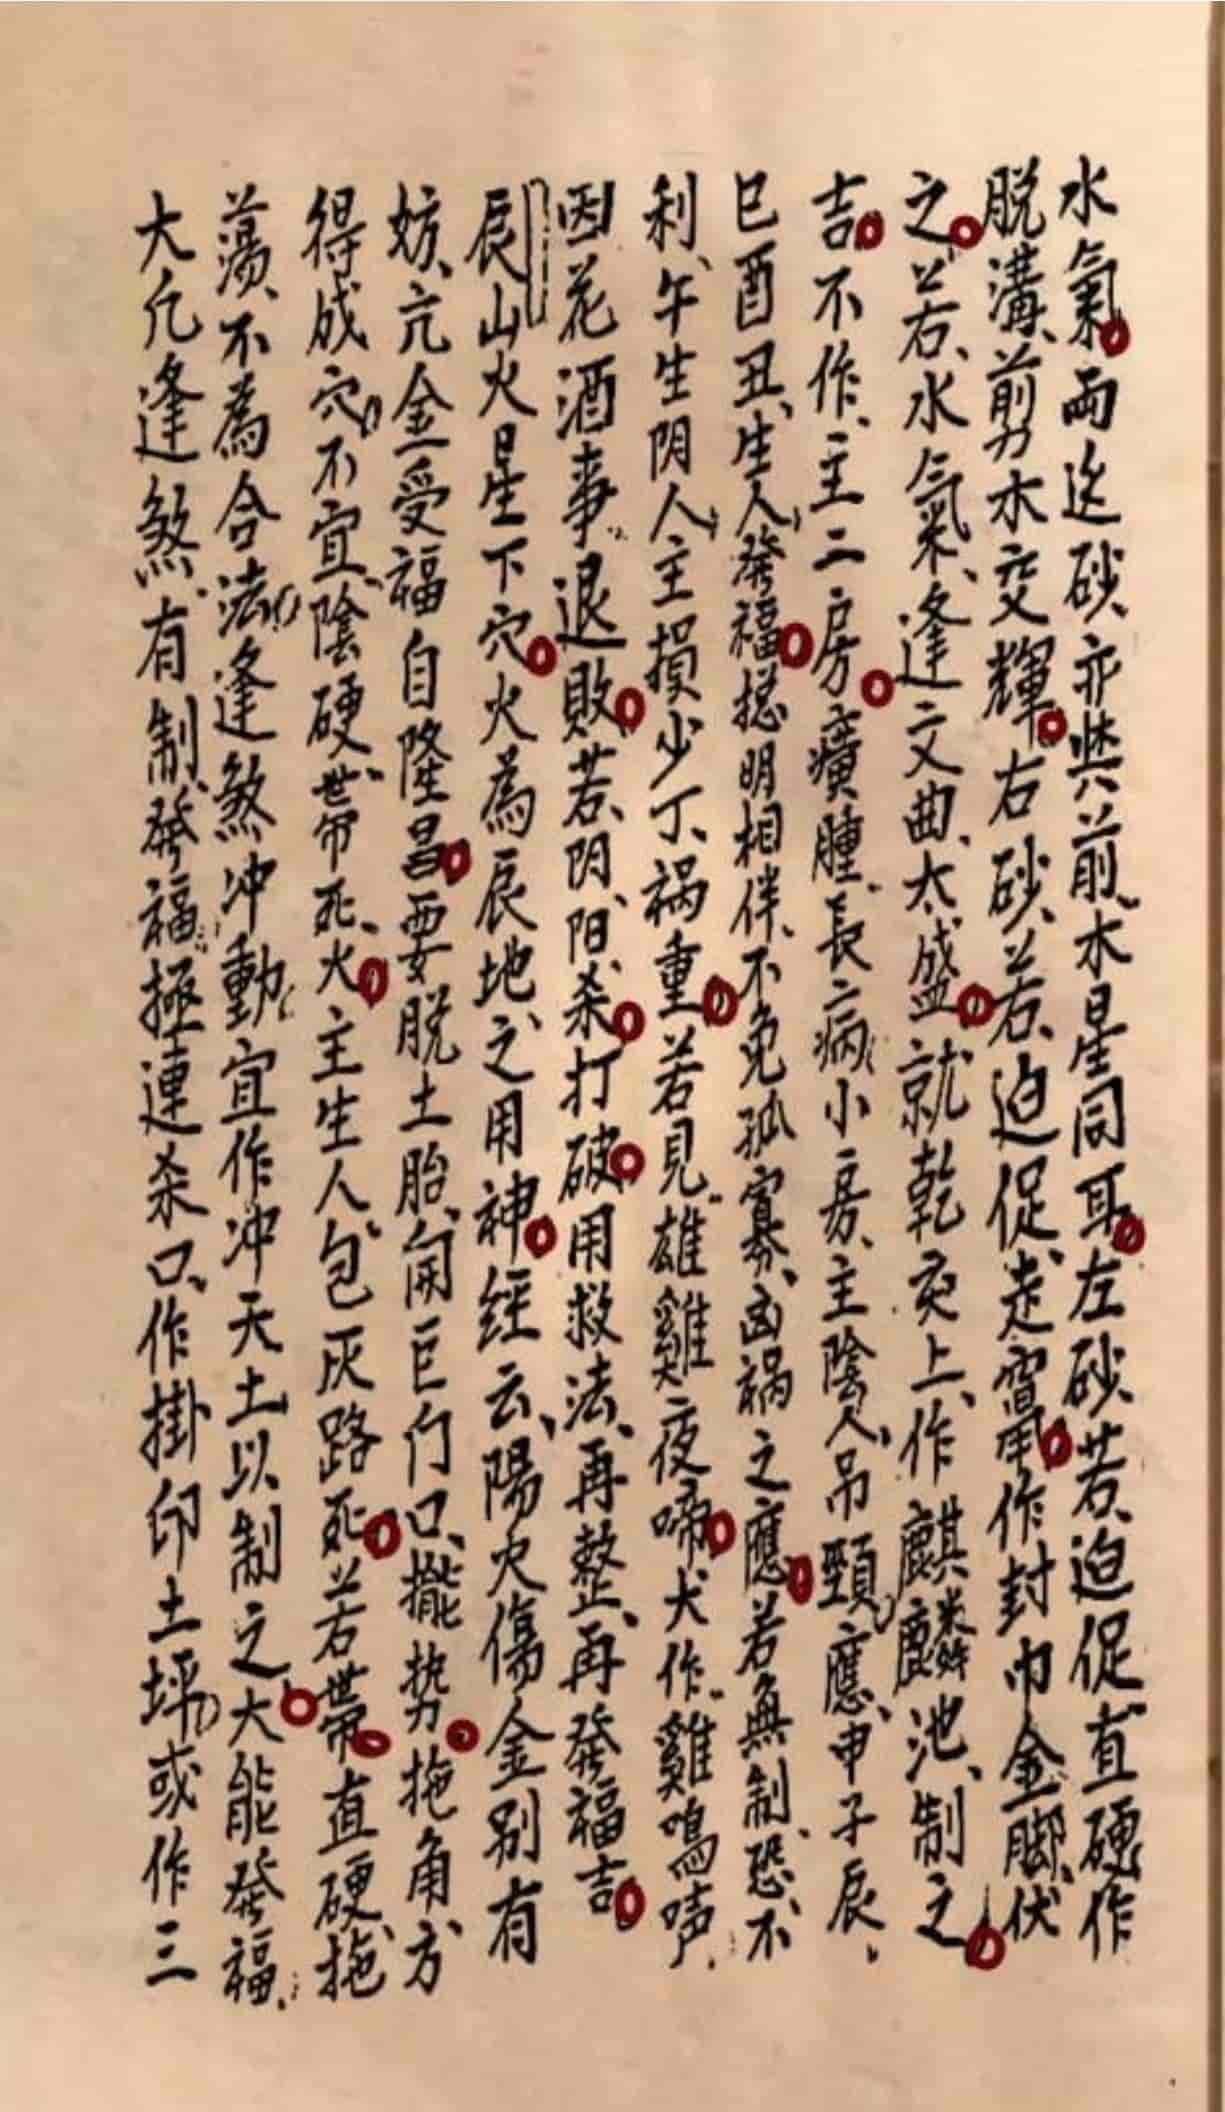 水氣而迯砂、亦典前、水星同耳左砂、若、迫促、直硬作
脱溝、前水交輝右砂、若、迫促、走竄作封巾金脚、伏
之若、水氣、逢文曲、太盛就乾亥上、作麒麟池、制之
吉不作、主二房癀腫、長病小房、主陰人、吊頸應、申子辰、
巳酉丑、生人發福摠明相伴、不免孤寡、凶禍之應若無制、恐、不
利、午生陰人主損少丁、禍重若見雄雞夜啼犬作、雞鳴声、
因花酒事退敗若、阴、阳、杀打破用救法、再整、再發福吉
辰山火星下穴火為辰地、之用神經云、陽火傷金别有
妨、亢金受福自隆昌要脱土胎、開巨门口、擺势拖角、方
得成穴不宜、陰硬、带死、火主生人包灰路死若带直硬、拖
蕩、不為合法逢煞冲動宜作冲天土以制之大能發福、
大凢逢煞、有制、發福極連杀口、作掛印土坪或作三